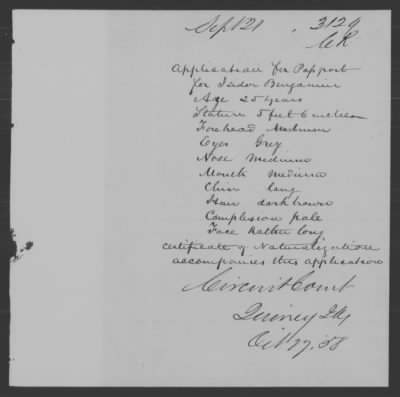 Sept 21 . 3129
Application for Passport
for Isidor Benjamin
Age 25 Years
Stature 5 feet 6 inches
Forehead Medium
Eyes Grey
Nose Medium
Mouth Medium
Chin long
Hair dark brown
Complexion pale
Face Rather long
certificate of Naturalization
accompanies this application
Circuit Court
Quincy Ills
Oct 27, '58